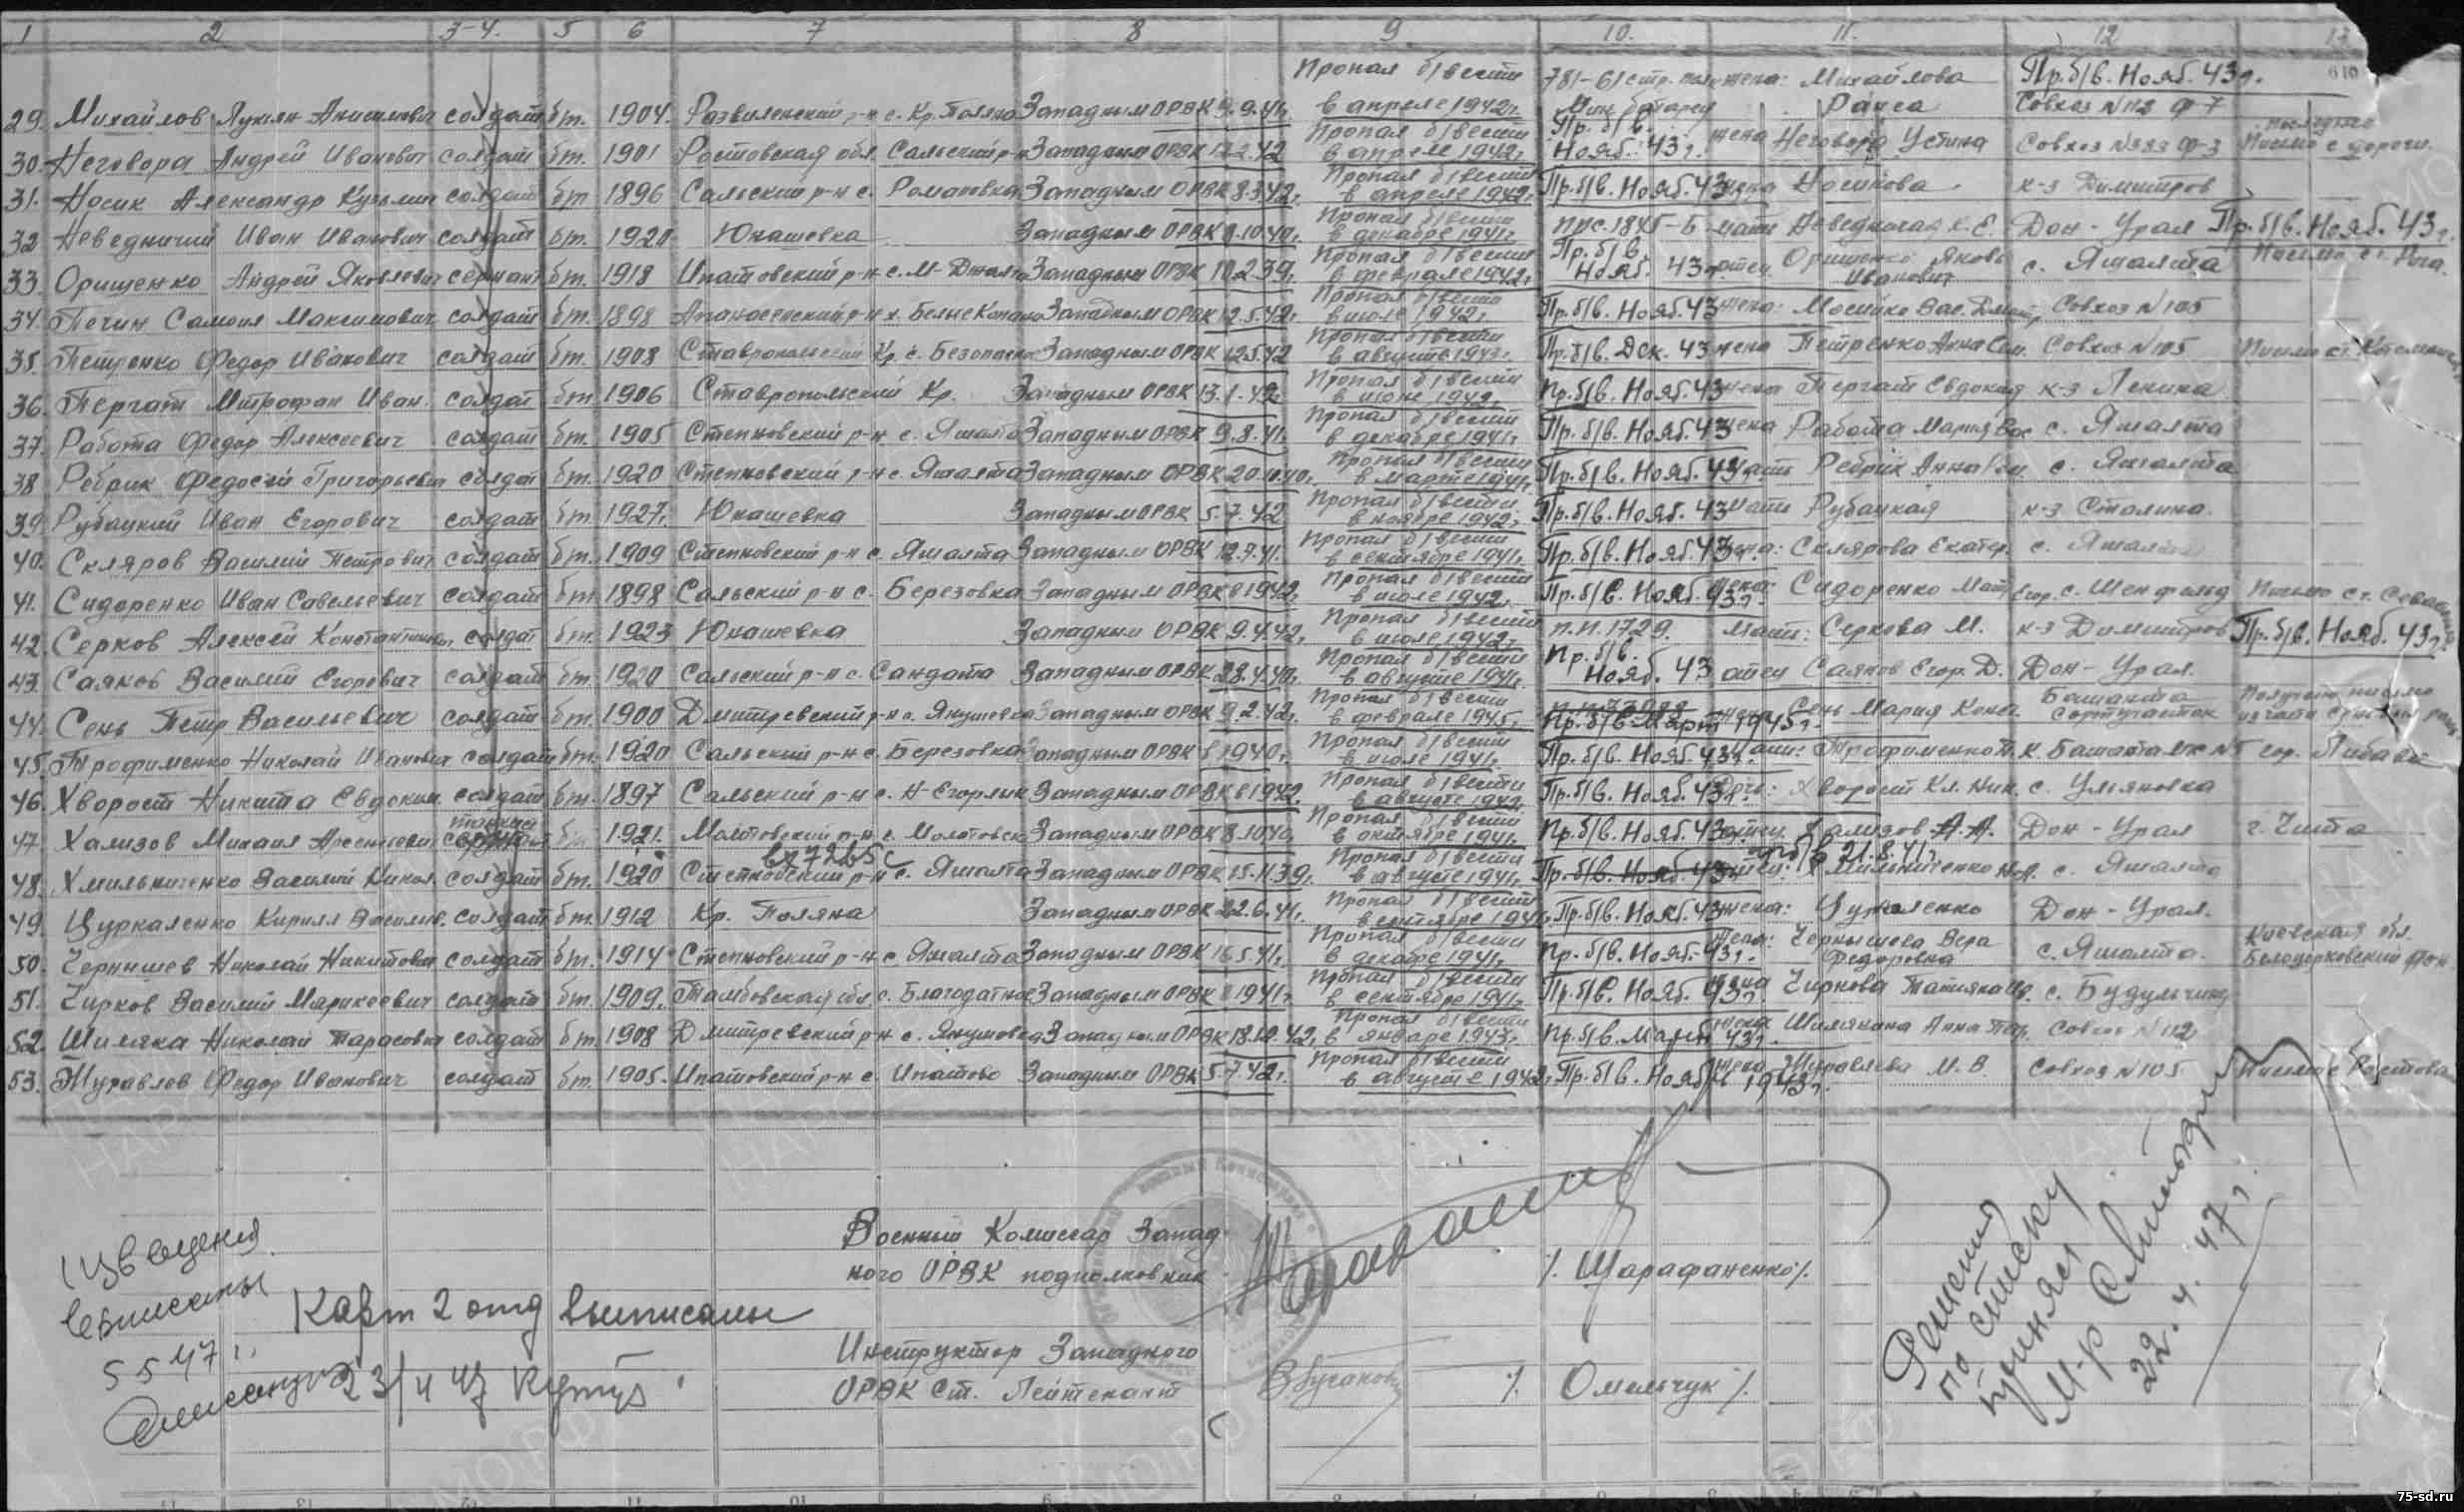 1 2 3-4. 5 6 7 8 9 10. 11. 12 13
29. Михайлов Лукьян солдат бт. 1904. Развиленский р-н с. Кр. Поляна Западным ОРВК 9.9.41г. Пропал б/вести в апреле 1942г. 781-61 стр. полк Мин. батарея жена: Михайлова Раиса Совхоз N 112 ф-7 Пр. б/в. Нояб. 43г.
30. Неговора Андрей Иванович солдат бт. 1901 Ростовская обл. Сальский р-н Западным ОРВК 12.2.42 Пропал б/вести в апреле 1942г. Пр. б/в. Нояб. 43г. жена Неговора Устина Совхоз ф-3 последнее Письмо с дороги.
31. Носик Александр Кузьмич солдат бт 1896 Сальский р-н с. Романовка Западным ОРВК 8.3.42г. Пропал б/вести в апреле 1942г. Пр. б/в. Нояб. 43 жена Носикова к-з Димитров
32 Неведничий Иван Иванович солдат бт. 1920 Юнашевка Западным ОРВК 8.10.40г. Пропал б/вести в декабре 1941г. ппс. 1845-Б мать Дон-Урал Пр. б/в. Нояб. 43г.
33. Орищенко Андрей Яковлевич сержант бт. 1918 Ипатовский р-н с. М-Джалга Западным ОРВК 10.2.39г. Пропал б/вести в феврале 1942г. Пр. б/в. Нояб. 43г отец Орищенко Яков Иванович с. Яшалта Письмо ст.
34. Печин Самоил Максимович солдат бт. 1898 Апанасенский р-н х. Белые Копани Западным ОРВК 12.5.42г. Пропал б/вести в июле 1942г. Пр. б/в. Нояб. 43 жена: Совхоз N 105
35. Петренко Федор Иванович солдат бт. 1908 Ставропольский Кр. с. Безопасное Западным ОРВК 12.5.42 Пропал б/вести в августе 1943г. Пр. б/в. Дек. 43 жена Петренко Анна Сем. Совхоз N 105 Письмо ст.
36. Пергат Митрофан Иван. солдат бт. 1906 Ставропольский Кр. Западным ОРВК 13.1.42г Пропал б/вести в июне 1942г. Пр. б/в. Нояб. 43 жена Пергат Евдокия к-з Ленина
37. Работа Федор Алексеевич солдат бт. 1905 Степновский р-н с. Яшалта Западным ОРВК 9.8.41г. Пропал б/вести в декабре 1941г. Пр. б/в. Нояб. 43 жена Работа Мария Вас с. Яшалта
38 Ребрик Федосий Григорьевич солдат бт. 1920 Степновский р-н с. Яшалта Западным ОРВК 20.10.40г. Пропал б/вести в марте 1941г. Пр. б/в. Нояб. 43 мать Ребрик Анна с. Яшалта
39. Рубацкий Иван Егорович солдат бт. 1927г. Юнашевка Западным ОРВК 5.7.42 Пропал б/вести в ноябре 1942г. Пр. б/в. Нояб. 43 мать Рубацкая к-з Сталина.
40. Скляров Василий Петрович солдат бт. 1909 Степновский р-н с. Яшалта Западным ОРВК 12.7.41. Пропал б/вести в сентябре 1941г. Пр. б/в. Нояб. 43 жена: Склярова Екатер. с. Яшалта
41. Сидоренко Иван Савельевич солдат бт. 1898 Сальский р-н с. Березовка Западным ОРВК в 1942г. Пропал б/вести в июле 1942г. Пр. б/в. Нояб. 43г. жена: Сидоренко Егор. с. Шенфельд Письмо ст.
42. Серков Алексей Константинович солдат бт. 1923 Юнашевка Западным ОРВК 9.4.42г. Пропал б/вести в июле 1942г. п.п. 1729. Мать: Серкова М. к-з Димитров Пр. б/в. Нояб. 43г.
43. Саяков Василий Егорович солдат бт. 1920 Сальский р-н с. Сандата Западным ОРВК 28.4.40г. Пропал б/вести в августе 1941г. Пр. б/в. Нояб. 43 отец Саяков Егор. Д. Дон-Урал.
44. Сень Петр Васильевич солдат бт. 1900 Дмитревский р-н с. Западным ОРВК 9.2.42г. Пропал б/вести в феврале 1945г. Пр. б/в Март 1945г. жена Сень Мария Конст. Башанта Сортучасток Получали письмо из части
45. Трофименко Николай Иванович солдат бт. 1920 Сальский р-н с. Березовка Западным ОРВК в 1940г. Пропал б/вести в июле 1941г. Пр. б/в. Нояб. 43г. мать: Трофименко П. К. Башанта гор. Либава
46. Хворост Никита Евдоким. солдат бт. 1897 Сальский р-н с. Н-Егорлык Западным ОРВК в 1942. Пропал б/вести в августе 1942. Пр. б/в. Нояб. 43г. Дочь: Хворост Кл. Ник. с. Ульяновка
47. Хализов Михаил Арсентьевич танкист сержант бт 1921. Молотовский р-н с. Молотовск Западным ОРВК 8.10.40. Пропал б/вести в октябре 1941г. Пр. б/в. Нояб. 43 отец Хализов А. А. Дон-Урал г. Чита
48. Хмильниченко Василий Никол. солдат бт. 1920 Степновский р-н с. Яшалта вх 7265с Западным ОРВК 15.11.39г. Пропал б/вести в августе 1941г. Пр. б/в. Нояб. 43г пр б/в 21.8.41г. отец: Хмильниченко с. Яшалта
49. Цуркаленко Кирилл Василев. солдат бт. 1912 Кр. Поляна Западным ОРВК 22.6.41г. Пропал б/вести в сентябре 1941г. Пр. б/в. Нояб. 43 жена: Цуркаленко Дон-Урал.
50. Чернышев Николай Никитович солдат бт. 1914 Степновский р-н с. Яшалта Западным ОРВК 16.5.41г. Пропал б/вести в декабре 1941г. Пр. б/в. Нояб. 43г. жена: Чернышева Вера Федоровна с. Яшалта. Киевская обл. Белоцерковский р-он
51. Чирков Василий Марикеевич солдат бт. 1909. Тамбовская обл с. Благодатное Западным ОРВК в 1941г. Пропал б/вести в сентябре 1941г. Пр. б/в. Нояб. 43г. жена Чиркова Татьяна с. Будульчины
52. Шиляка Николай Тарасович солдат бт. 1908 Дмитревский р-н с. Западным ОРВК 18.12.42г. Пропал б/вести в январе 1943г. Пр. б/в. Март 43г. жена Анна Совхоз N 112
53. Журавлев Федор Иванович солдат бт. 1905. Ипатовский р-н с. Ипатово Западным ОРВК 5.7.42г. Пропал б/вести в августе 1942г. Пр. б/в. Нояб 1943г. жена Журавлева М. В. Совхоз N 105 Письмо с Ростова
Военный Комиссар Западного ОРВК подполковник /. Шарафаненко /.
Инструктор Западного ОРВК Ст. Лейтенант /. Омельчук /.
Извещения
выписаны
5 5 47 г.
Карт 2 отд выписаны
23/4 47
Решения
по списку
приняты
М-р
22. 4. 47г.
75-sd.ru